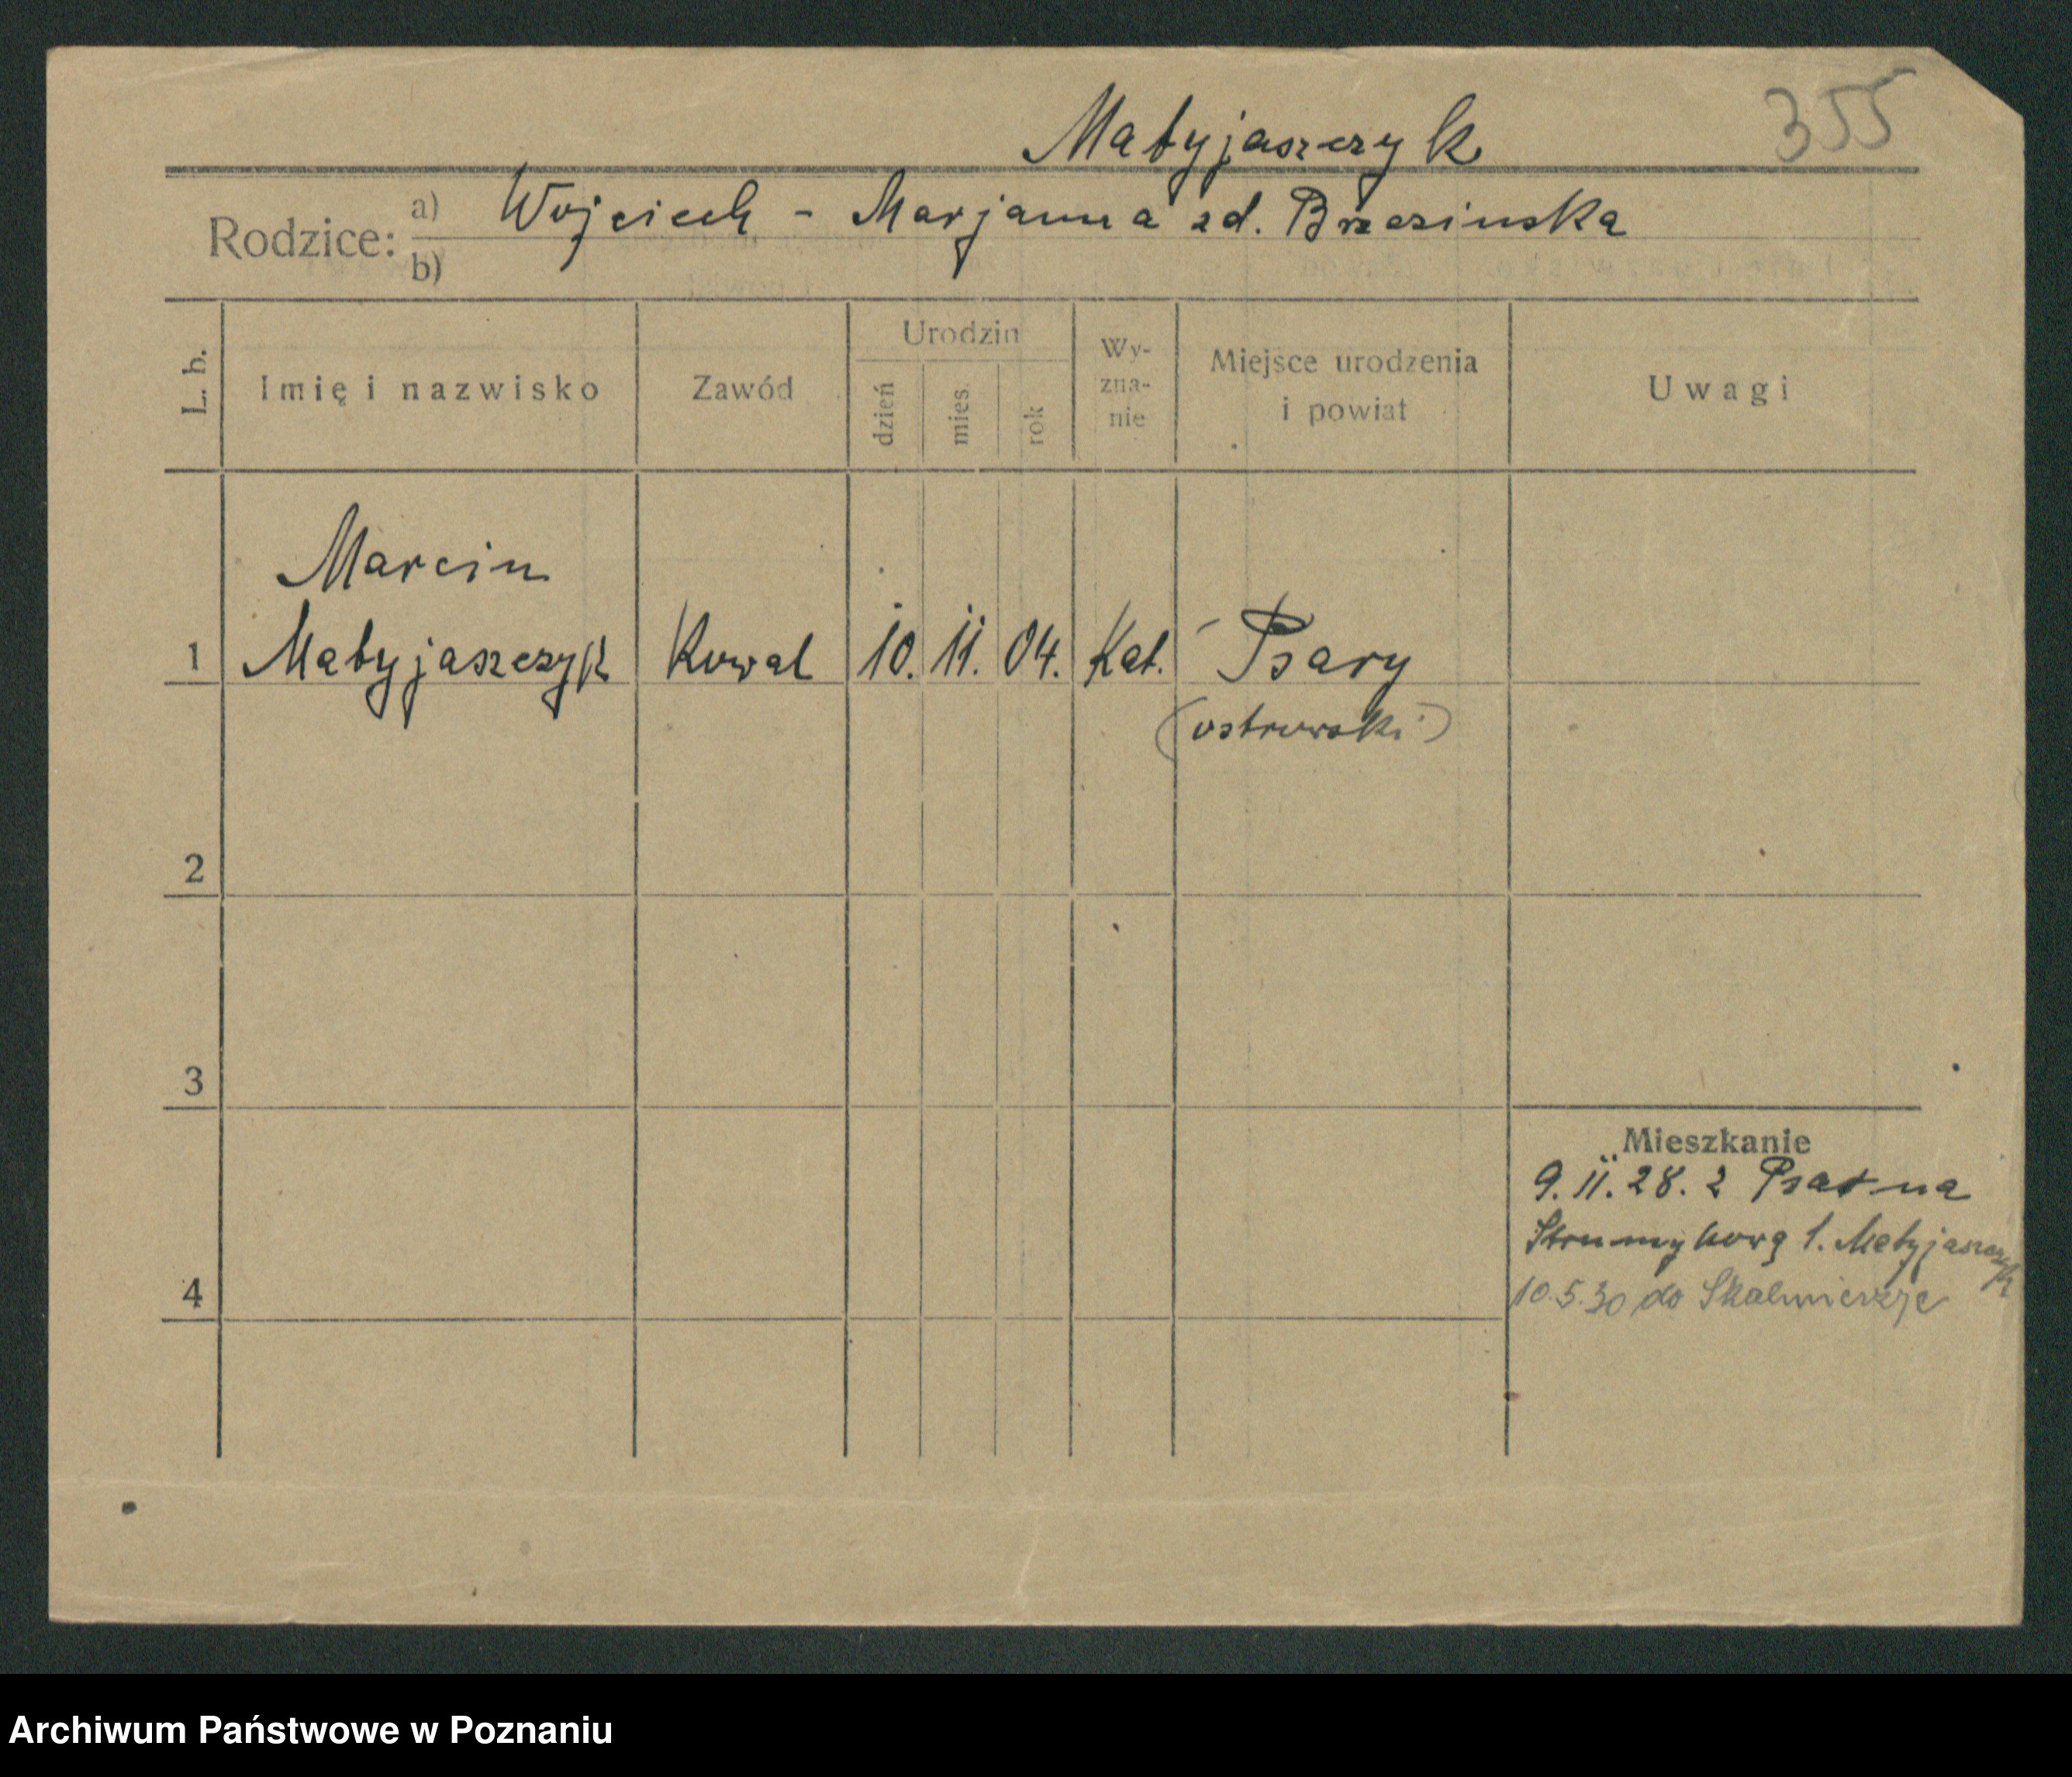 Matyjaszczyk 355
Rodzice: a) Wojciech - Marjanna zd. Brzezinska
b)
L. b. Imię i nazwisko Zawód Urodzin dzień mies. rok Wy-zna-nie Miejsce urodzenia i powiat Uwagi
Marcin
1 Matyjaszczyk Kowal 10. 11. 04. Kat. Psary
(ostrowski)
2
3
Mieszkanie
9. 11. 28. z Psar na
1. Matyjaszczyk
4 10.5.30 do Skalmierzyc
Archiwum Państwowe w Poznaniu